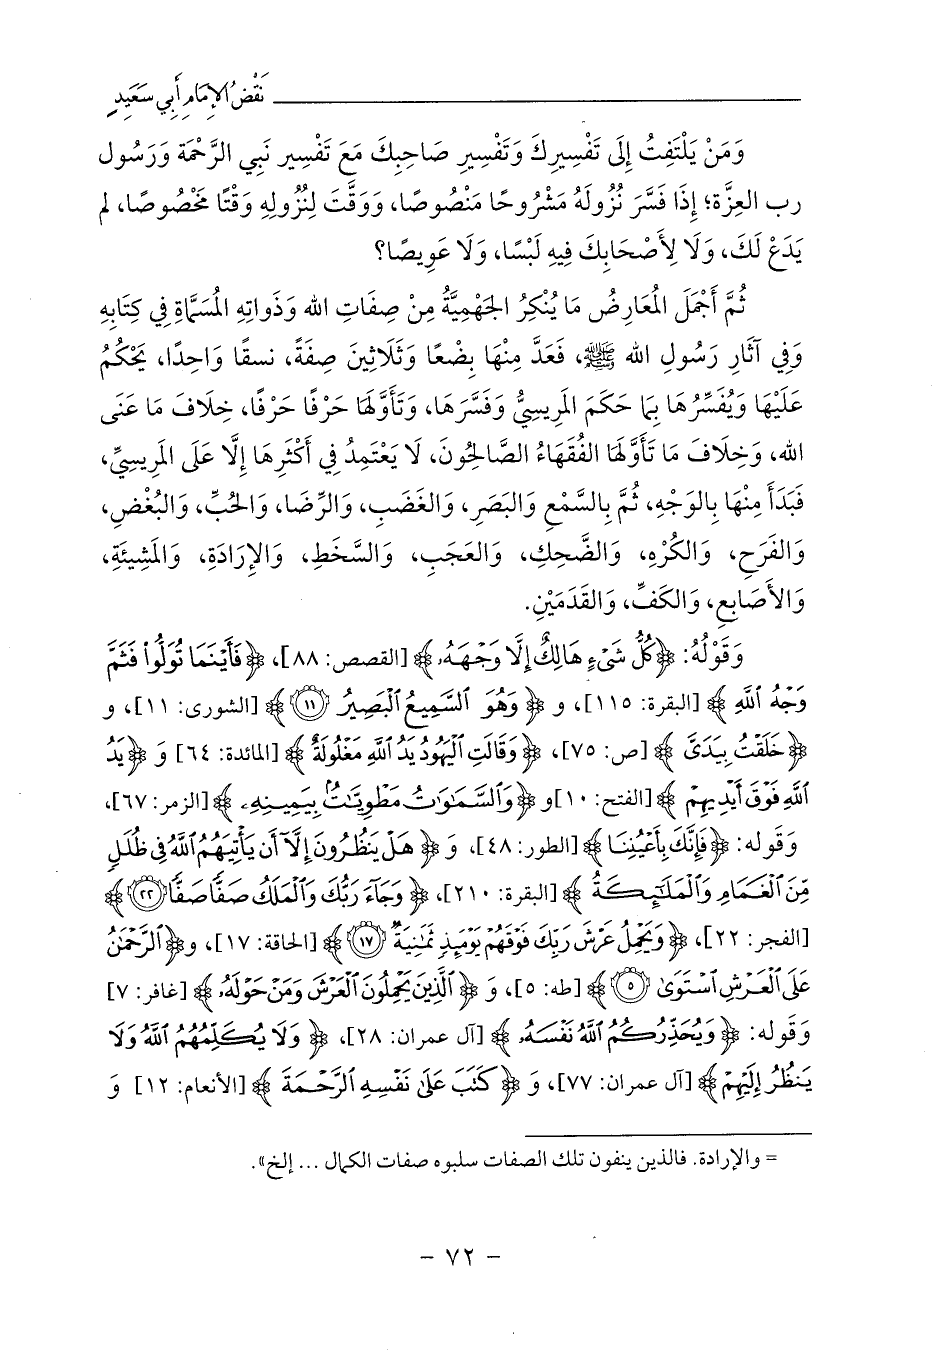 نَقْضُ الإِمَامِ أَبِي سَعِيدٍ
وَمَنْ يَلْتَفِتُ إِلَى تَفْسِيرِكَ وَتَفْسِيرِ صَاحِبِكَ مَعَ تَفْسِيرِ نَبِي الرَّحْمَة وَرَسُول
رب العِزَّة؛ إِذَا فَسَّرَ نُزُولَهُ مَشْرُوحًا مَنْصُوصًا، وَوَقَّتَ لِنُزُولِهِ وَقْتًا مَخْصُوصًا، لم
يَدَعْ لَكَ، وَلَا لِأَصْحَابِكَ فِيهِ لَبْسًا، وَلَا عَوِيصًا؟
ثُمَّ أَجْمَلَ المُعَارِضُ مَا يُنْكِرُ الجَهْمِيَّةُ مِنْ صِفَاتِ الله وَذَواتِهِ المُسَمَّاةِ فِي كِتَابِهِ
وَفِي آثَارِ رَسُولِ الله ﷺ، فَعَدَّ مِنْهَا بِضْعًا وَثَلَاثِينَ صِفَةً، نسقًا وَاحِدًا، يَحْكُمُ
عَلَيْهَا وَيُفَسِّرُهَا بِمَا حَكَمَ المَرِيسِيُّ وَفَسَّرَهَا، وَتَأَوَّلَهَا حَرْفًا حَرْفًا، خِلَافَ مَا عَنَى
الله، وَخِلَافَ مَا تَأَوَّلَهَا الفُقَهَاءُ الصَّالِحُونَ، لَا يَعْتَمِدُ فِي أَكْثَرِهَا إِلَّا عَلَى المَرِيسِيِّ،
فَبَدَأَ مِنْهَا بِالوَجْهِ، ثُمَّ بِالسَّمْعِ وَالبَصَرِ، وَالغَضَبِ، وَالرِّضَا، وَالحُبِّ، وَالبُغْضِ،
وَالفَرَحِ، وَالكُرْهِ، وَالضَّحِكِ، وَالعَجَبِ، وَالسَّخَطِ، وَالإِرَادَةِ، وَالمَشِيئَةِ،
وَالأَصَابِعِ، وَالكَفِّ، وَالقَدَمَيْنِ.
وَقَوْلُهُ: ﴿كُلُّ شَيْءٍ هَالِكٌ إِلَّا وَجْهَهُۥ﴾ [القصص: ٨٨]، ﴿فَأَيْنَمَا تُوَلُّوا۟ فَثَمَّ
وَجْهُ ٱللَّهِ﴾ [البقرة: ١١٥]، و ﴿وَهُوَ ٱلسَّمِيعُ ٱلْبَصِيرُ ۝١١﴾ [الشورى: ١١]، و
﴿خَلَقْتُ بِيَدَىَّ﴾ [ص: ٧٥]، ﴿وَقَالَتِ ٱلْيَهُودُ يَدُ ٱللَّهِ مَغْلُولَةٌ﴾ [المائدة: ٦٤] وَ ﴿يَدُ
ٱللَّهِ فَوْقَ أَيْدِيهِمْ﴾ [الفتح: ١٠] و ﴿وَٱلسَّمَٰوَٰتُ مَطْوِيَّٰتٌۢ بِيَمِينِهِۦ﴾ [الزمر: ٦٧]،
وَقوله: ﴿فَإِنَّكَ بِأَعْيُنِنَا﴾ [الطور: ٤٨]، وَ ﴿هَلْ يَنظُرُونَ إِلَّآ أَن يَأْتِيَهُمُ ٱللَّهُ فِى ظُلَلٍ
مِّنَ ٱلْغَمَامِ وَٱلْمَلَٰٓئِكَةُ﴾ [البقرة: ٢١٠]، ﴿وَجَآءَ رَبُّكَ وَٱلْمَلَكُ صَفًّا صَفًّا ۝٢٢﴾
[الفجر: ٢٢]، ﴿وَيَحْمِلُ عَرْشَ رَبِّكَ فَوْقَهُمْ يَوْمَئِذٍ ثَمَٰنِيَةٌ ۝١٧﴾ [الحاقة: ١٧]، و﴿ٱلرَّحْمَٰنُ
عَلَى ٱلْعَرْشِ ٱسْتَوَىٰ ۝٥﴾ [طه: ٥]، وَ ﴿ٱلَّذِينَ يَحْمِلُونَ ٱلْعَرْشَ وَمَنْ حَوْلَهُۥ﴾ [غافر: ٧]
وَقوله: ﴿وَيُحَذِّرُكُمُ ٱللَّهُ نَفْسَهُۥ﴾ [آل عمران: ٢٨]، ﴿وَلَا يُكَلِّمُهُمُ ٱللَّهُ وَلَا
يَنظُرُ إِلَيْهِمْ﴾ [آل عمران: ٧٧]، وَ ﴿كَتَبَ عَلَىٰ نَفْسِهِ ٱلرَّحْمَةَ﴾ [الأنعام: ١٢] وَ
= والإرادة. فالذين ينفون تلك الصفات سلبوه صفات الكمال ... إلخ».
- ٧٢ -